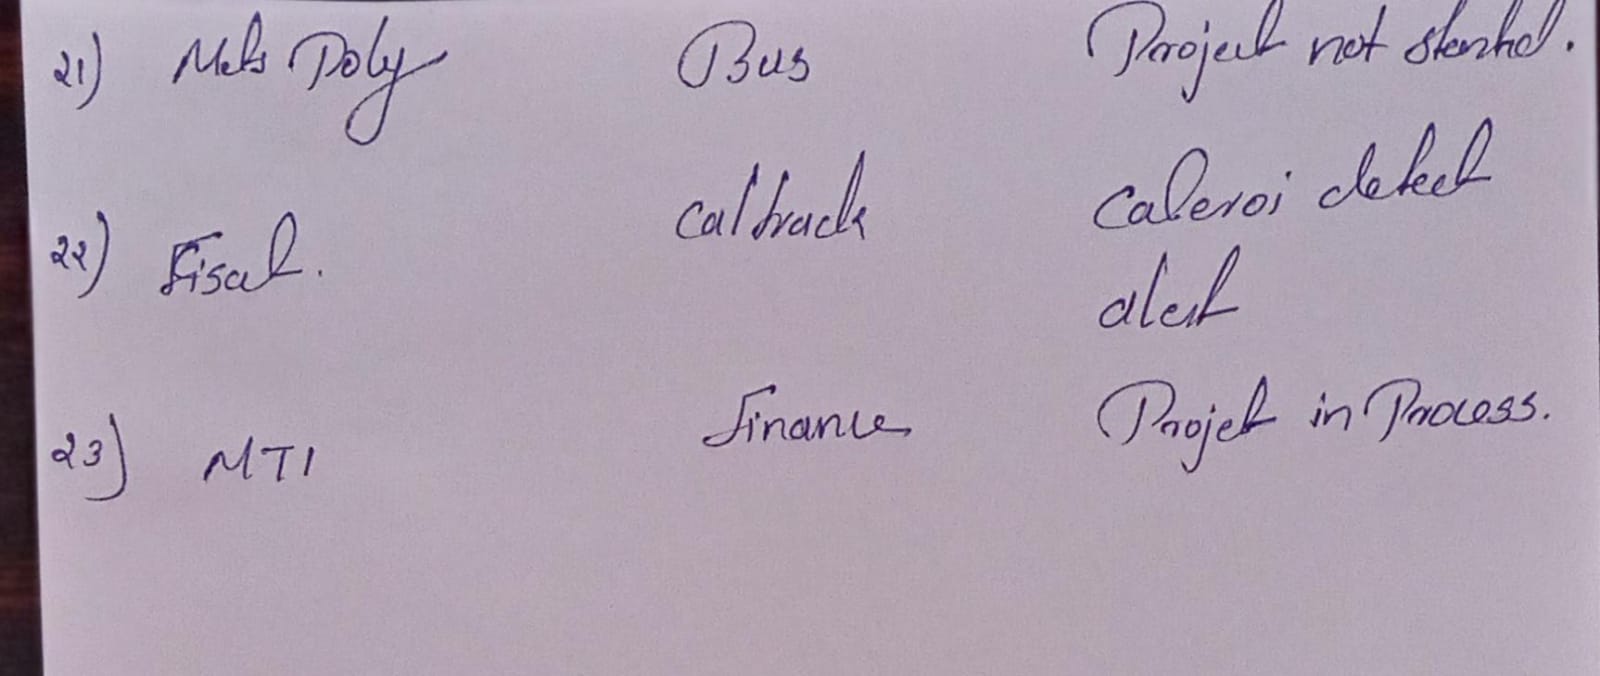 21) Mets Poly Bus Project not started.
22) Fisal. caltrack caleroi detect
alert
23) MTI Finance Projet in Process.